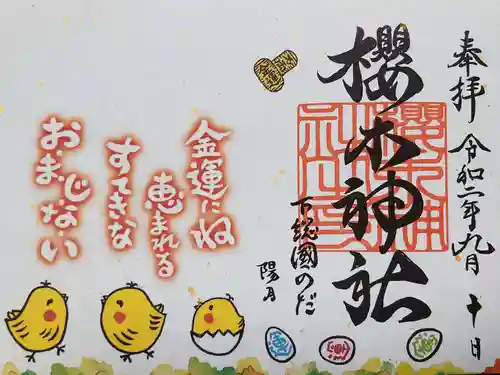 奉拝 令和二年九月十日
櫻木神社
下総國のだ
陽月
金運にね
恵まれる
すてきな
おまじない